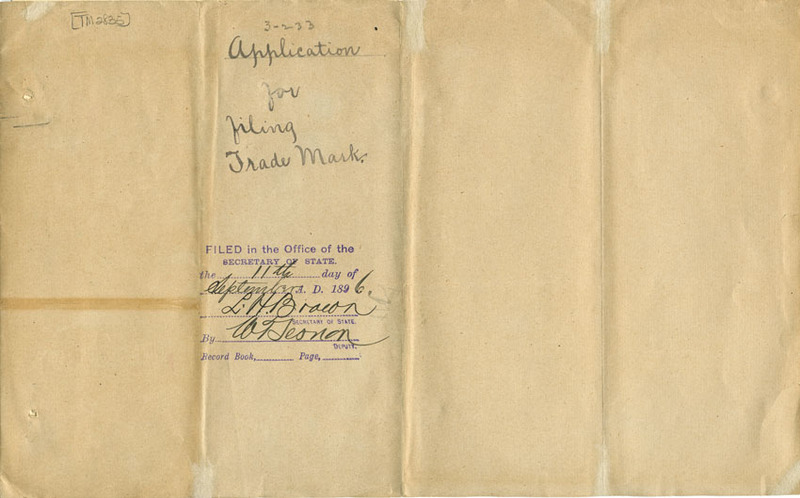 [TM2835]
3-233
Application
for
filing
Trade Mark.
FILED in the Office of the
SECRETARY OF STATE.
the 11th day of
September A. D. 1896.
L. H. Brown
SECRETARY OF STATE.
By
DEPUTY.
Record Book, Page,